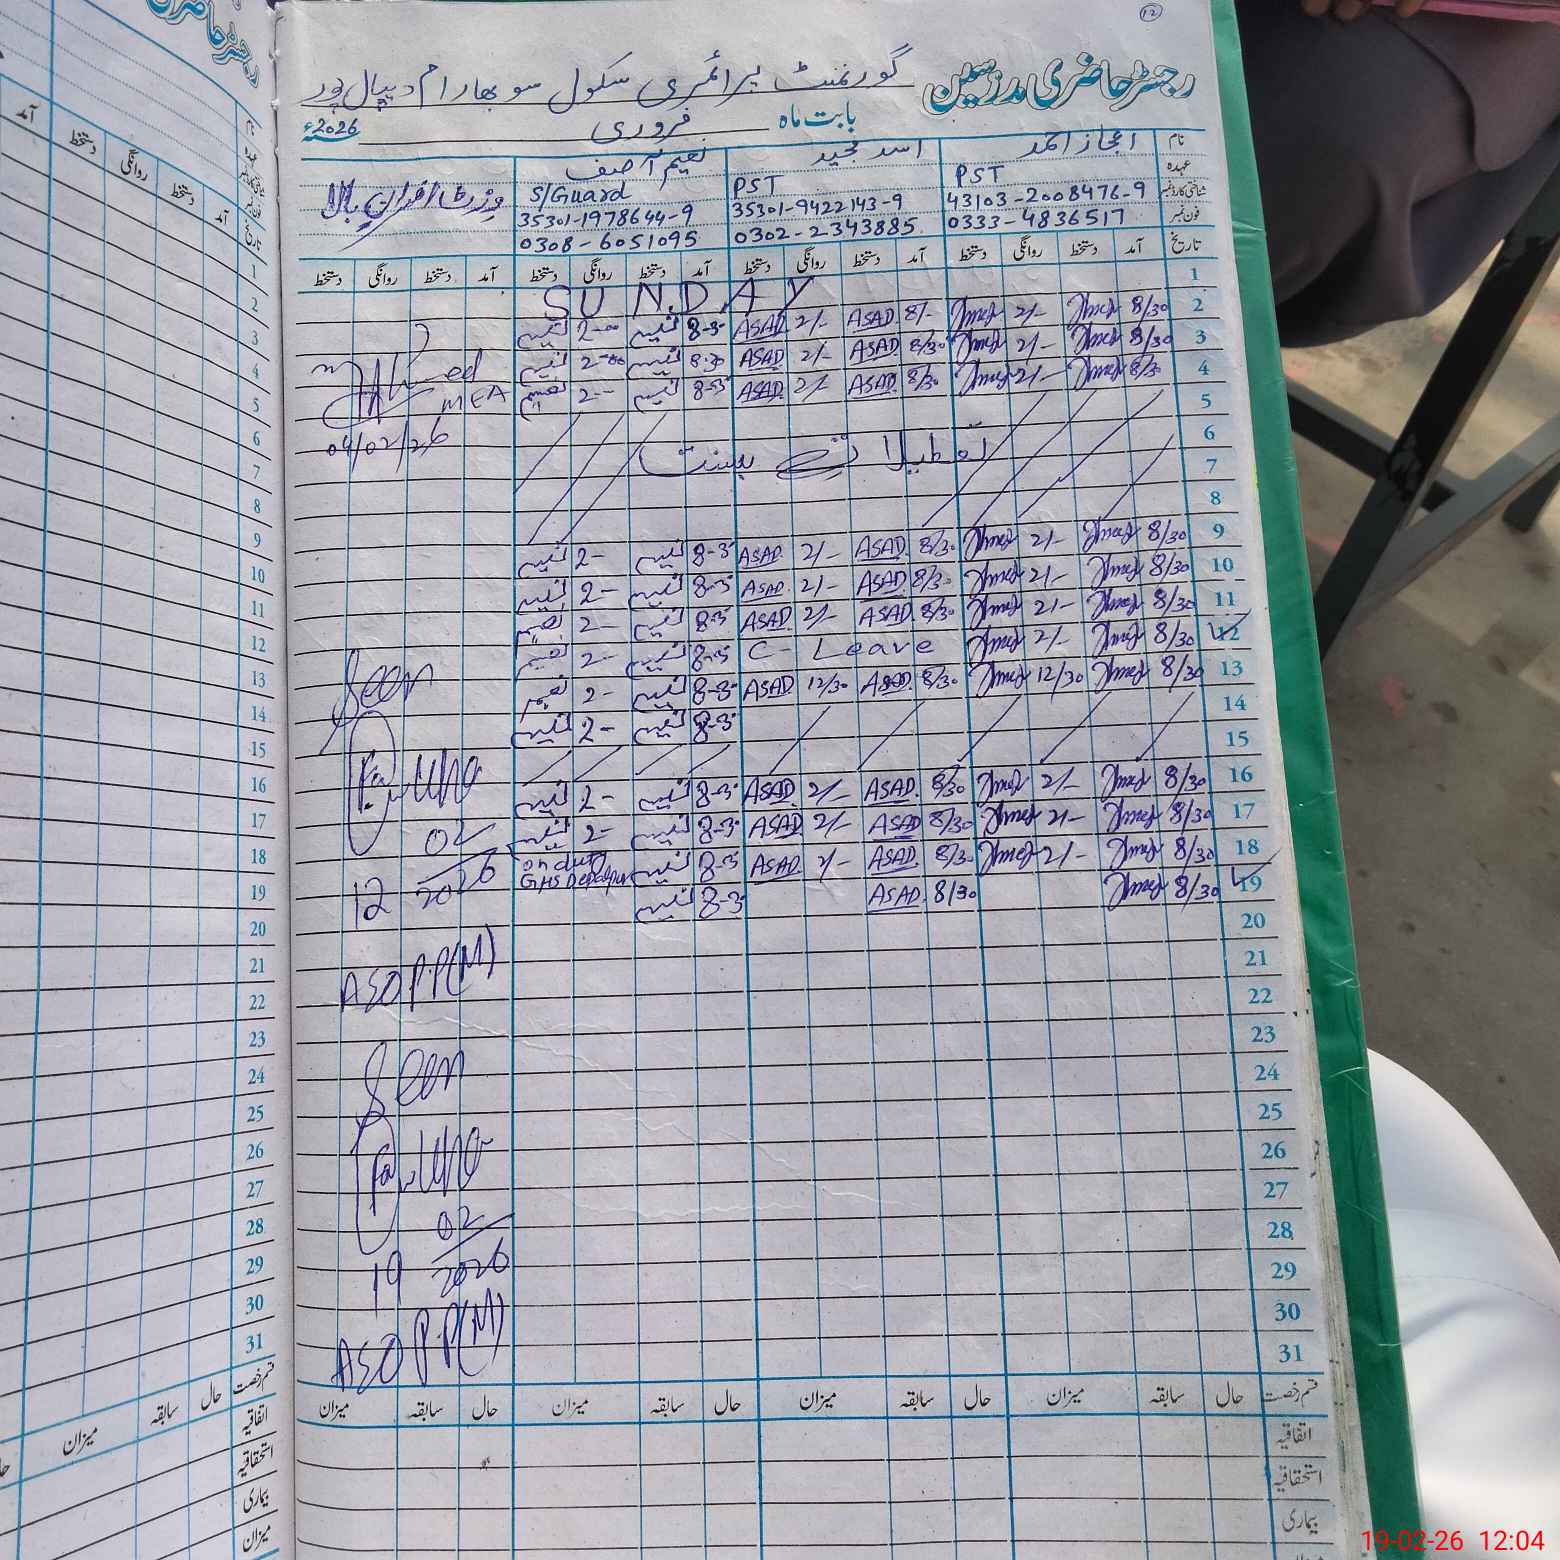 12
رجسٹر حاضری مدرسین گورنمنٹ پرائمری سکول سوبھارام دیپالپور
بابت ماہ فروری 2026ء
نام اعجاز احمد اسد مجید نعیم آصف
عہدہ PST PST S/Guard وزٹ افسران بالا
شناختی کارڈ نمبر 43103-2008476-9 35301-9422143-9 35301-1978644-9
فون نمبر 0333-4836517 0302-2343885 0308-6051095
تاریخ آمد دستخط روانگی دستخط آمد دستخط روانگی دستخط آمد دستخط روانگی دستخط آمد دستخط روانگی دستخط
1 SUNDAY
2 8/30 Ahmed 2/- Ahmed 8/- ASAD 2/- ASAD 8-3 نعیم 2-00 نعیم
3 8/30 Ahmed 2/- Ahmed 8/30 ASAD 2/- ASAD 8-3 نعیم 2-00 نعیم
4 8/30 Ahmed 2/- Ahmed 8/30 ASAD 2/- ASAD 8-3 نعیم 2-- نعیم
MEA
5
04/02/26
6 تعطیلات بسنت
7
8
9 8/30 Ahmed 2/- Ahmed 8/30 ASAD 2/- ASAD 8-3 نعیم 2- نعیم
10 8/30 Ahmed 2/- Ahmed 8/30 ASAD 2/- ASAD 8-3 نعیم 2- نعیم
11 8/30 Ahmed 2/- Ahmed 8/30 ASAD 2/- ASAD 8-3 نعیم 2- نعیم
12 8/30 Ahmed 2/- Ahmed C- Leave 8-3 نعیم 2- نعیم
Seen
13 8/30 Ahmed 12/30 Ahmed 8/30 ASAD 12/30 ASAD 8-3 نعیم 2- نعیم
14 8-3 نعیم 2- نعیم
15
16 8/30 Ahmed 2/- Ahmed 8/30 ASAD 2/- ASAD 8-3 نعیم 2- نعیم
17 8/30 Ahmed 2/- Ahmed 8/30 ASAD 2/- ASAD 8-3 نعیم 2- نعیم
18 8/30 Ahmed 2/- Ahmed 8/30 ASAD 2/- ASAD 8-3 نعیم on duty GHS Depalpur
12 02/2026
19 8/30 Ahmed 8/30 ASAD 8-3 نعیم
20
21
ASO P.P(M)
22
23
24
Seen
25
26
27
28
29
19 02/2026
30
31
ASO P.P(M)
قسم رخصت حال سابقہ میزان حال سابقہ میزان حال سابقہ میزان حال سابقہ میزان
اتفاقیہ
استحقاقیہ
بیماری
رجسٹر حاضری
آمد
دستخط
روانگی
دستخط
آمد
تاریخ
1
2
3
4
5
6
7
8
9
10
11
12
13
14
15
16
17
18
19
20
21
22
23
24
25
26
27
28
29
30
31
قسم رخصت حال سابقہ میزان
اتفاقیہ
استحقاقیہ
بیماری
میزان
19-02-26 12:04